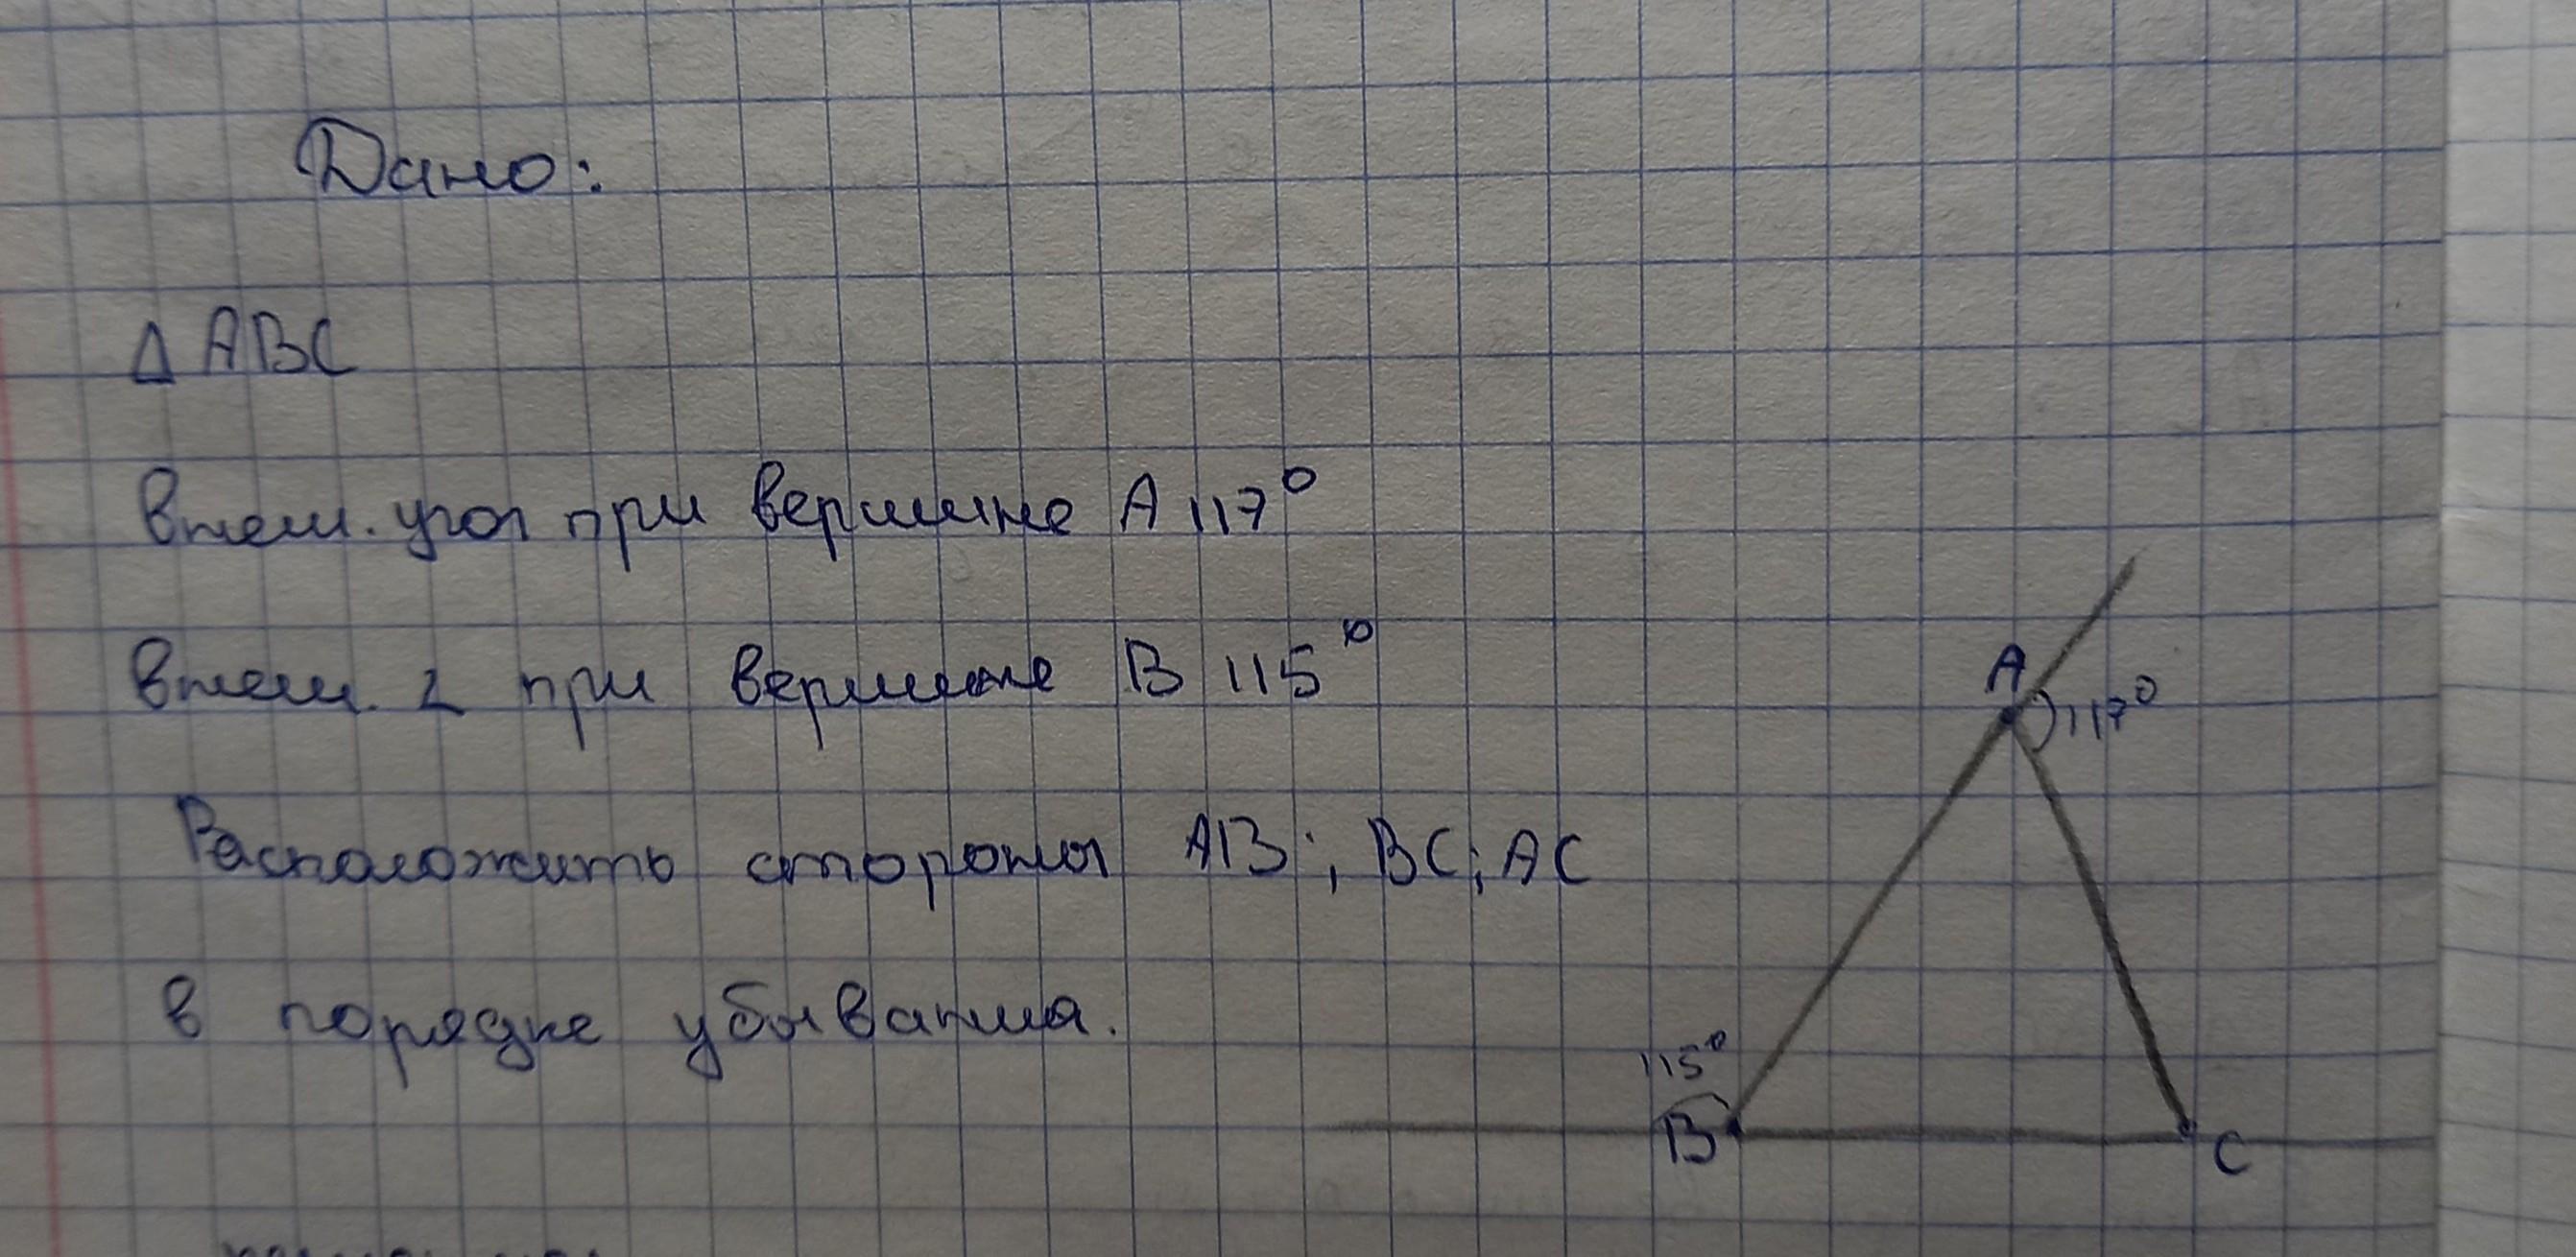 Дано:
Δ ABC
Внеш. угол при вершине A 117°
Внеш. ∠ при вершине B 115°
Расположить стороны AB; BC; AC
в порядке убывания.
A
117°
115°
B
C